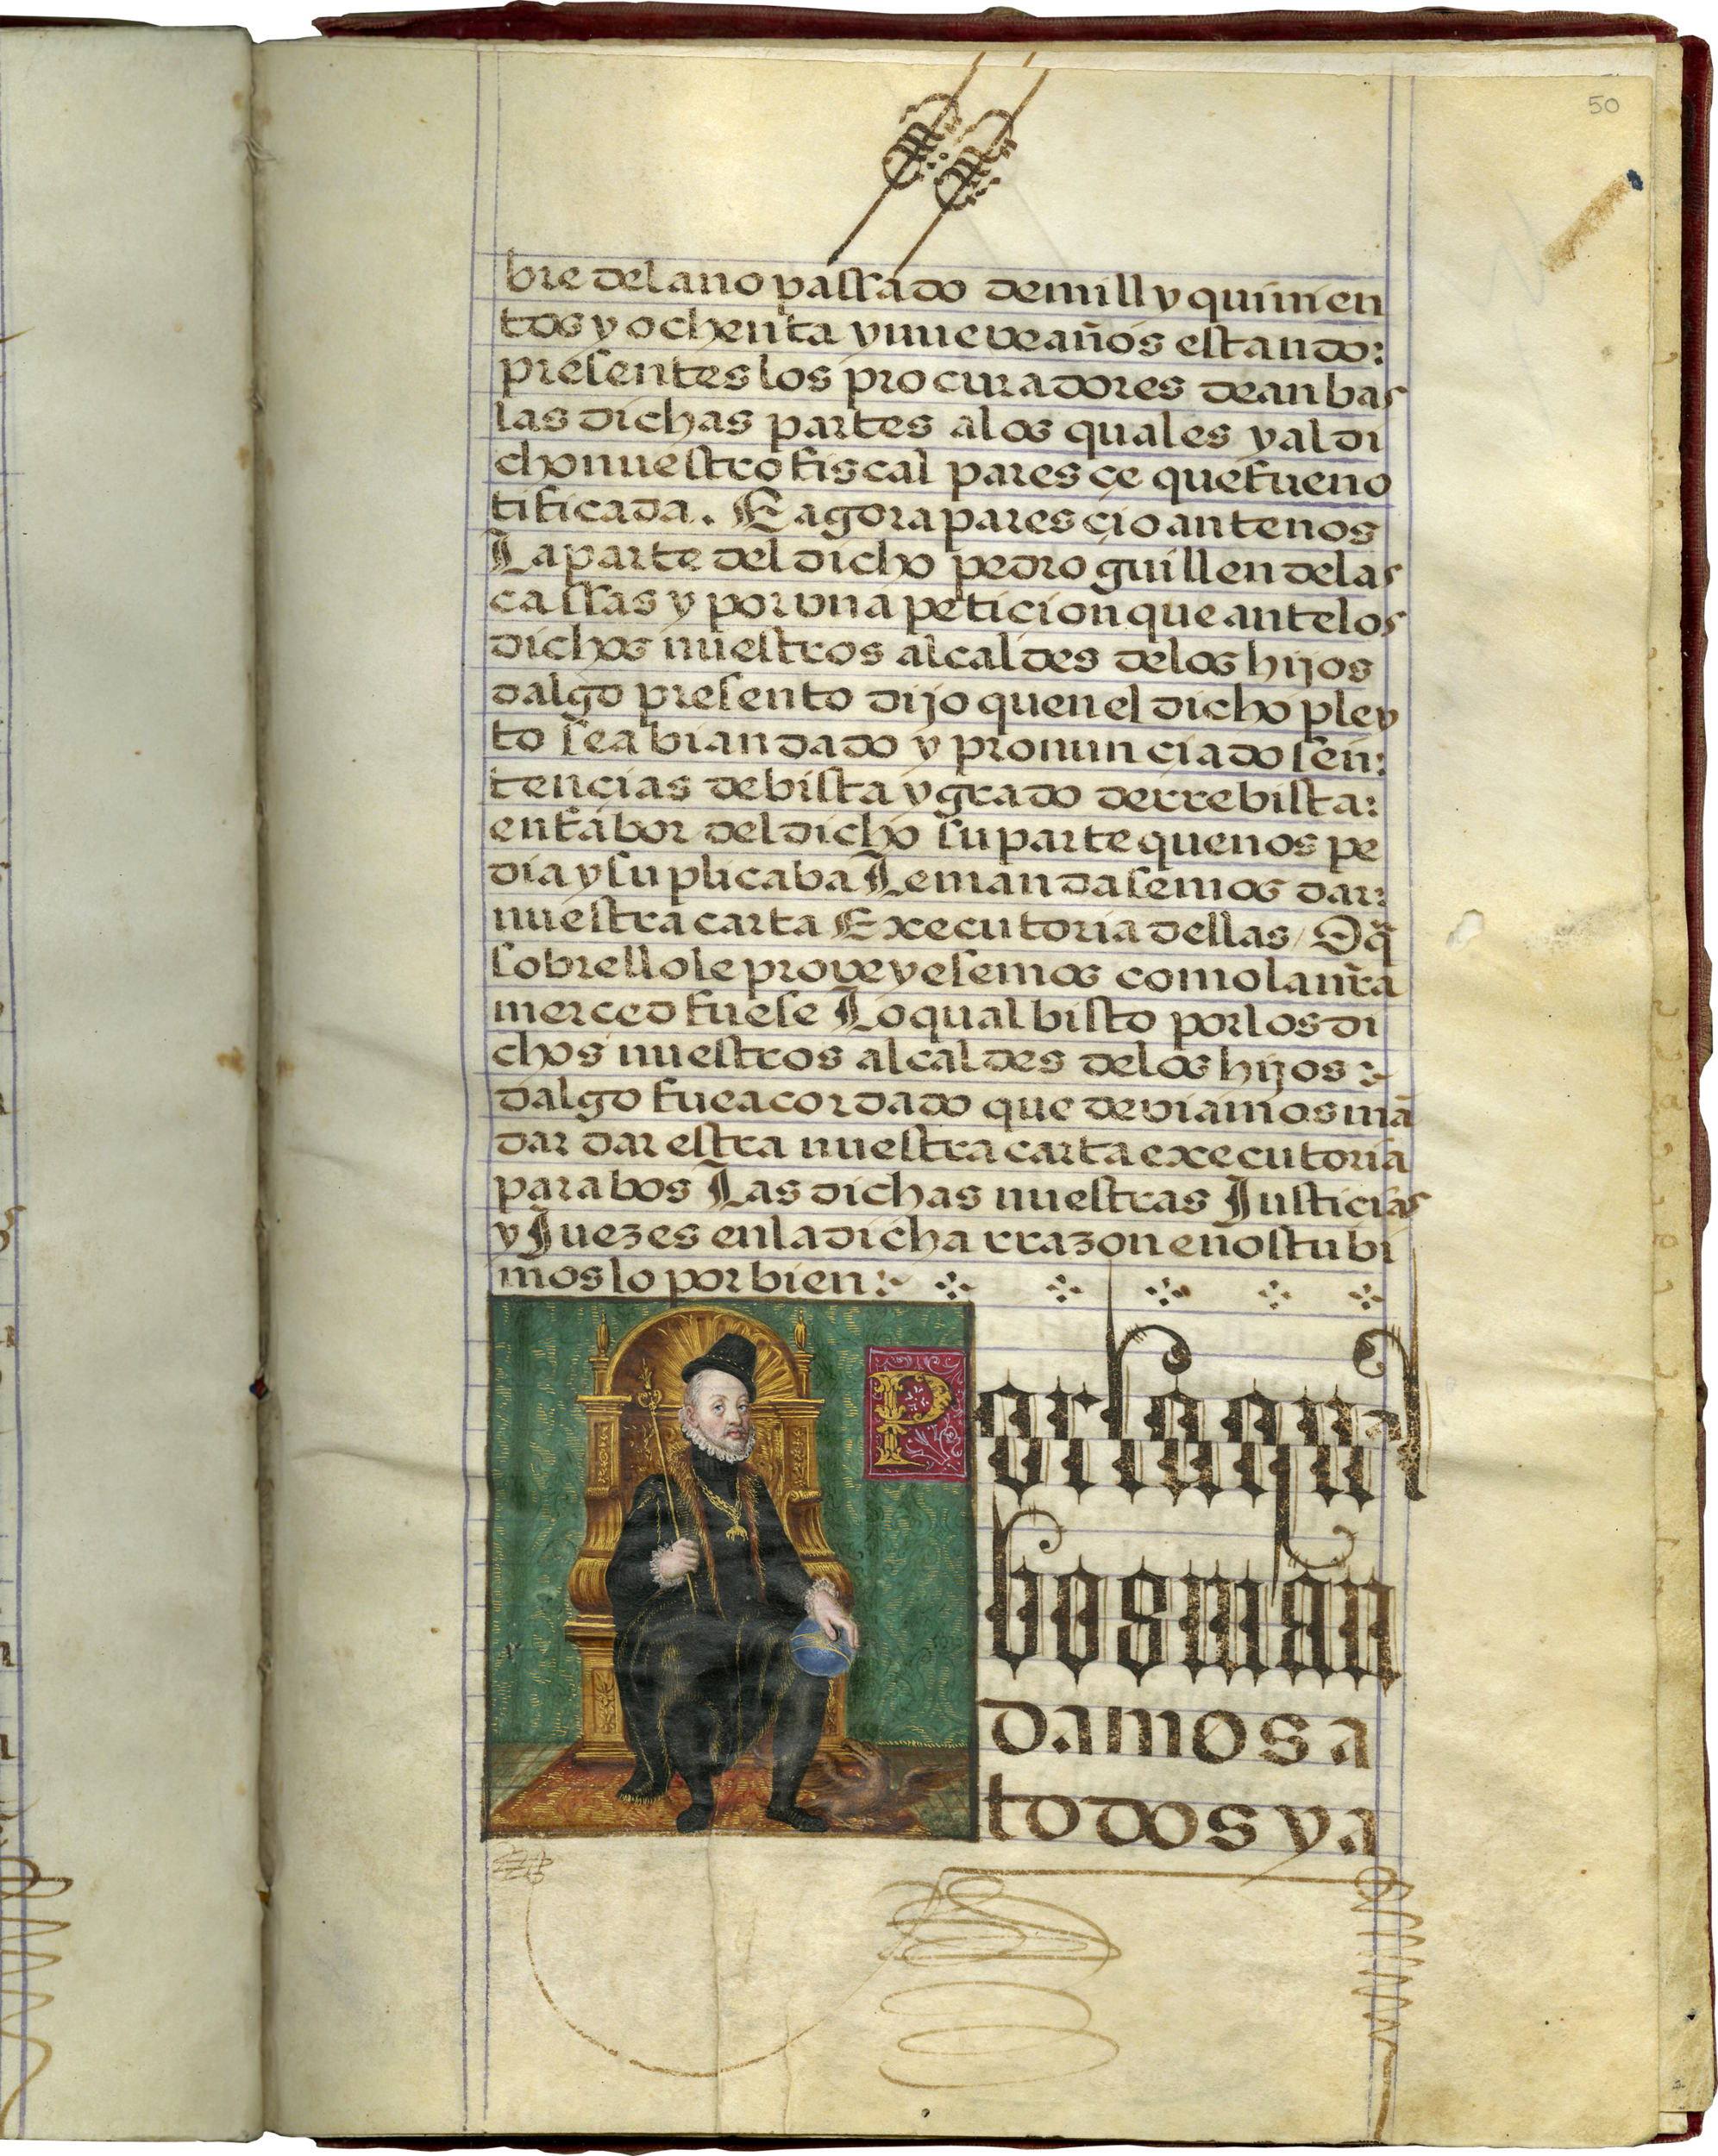 50
bre del ano passado de mill y quinien
tos y ochenta y nueve años estando:
presentes los procuradores de anbas
las dichas partes a los quales y al di
cho nuestro fiscal paresçe que fue no
tificada. E agora paresçio ante nos
La parte del dicho pedro guillen de las
cassas y por vna peticion que ante los
dichos nuestros alcaldes de los hijos
dalgo presento dijo quen el dicho pley
to se abian dado y pronunciado sen:
tencias de bista y grado de rrebista:
en fabor del dicho su parte que nos pe
dia y suplicaba Le mandasemos dar:
nuestra carta Executoria dellas / O q̃
sobrello le proveyesemos como la nr̃a
merced fuese Lo qual bisto por los di
chos nuestros alcaldes de los hijos :~
dalgo fue acordado que deviamos mã
dar dar estra nuestra carta executoria
para bos Las dichas nuestras Justicias
y Juezes en la dicha rrazon e nos tubi
moslo por bien :~
Por la qual
bos man
damos a
todos y a